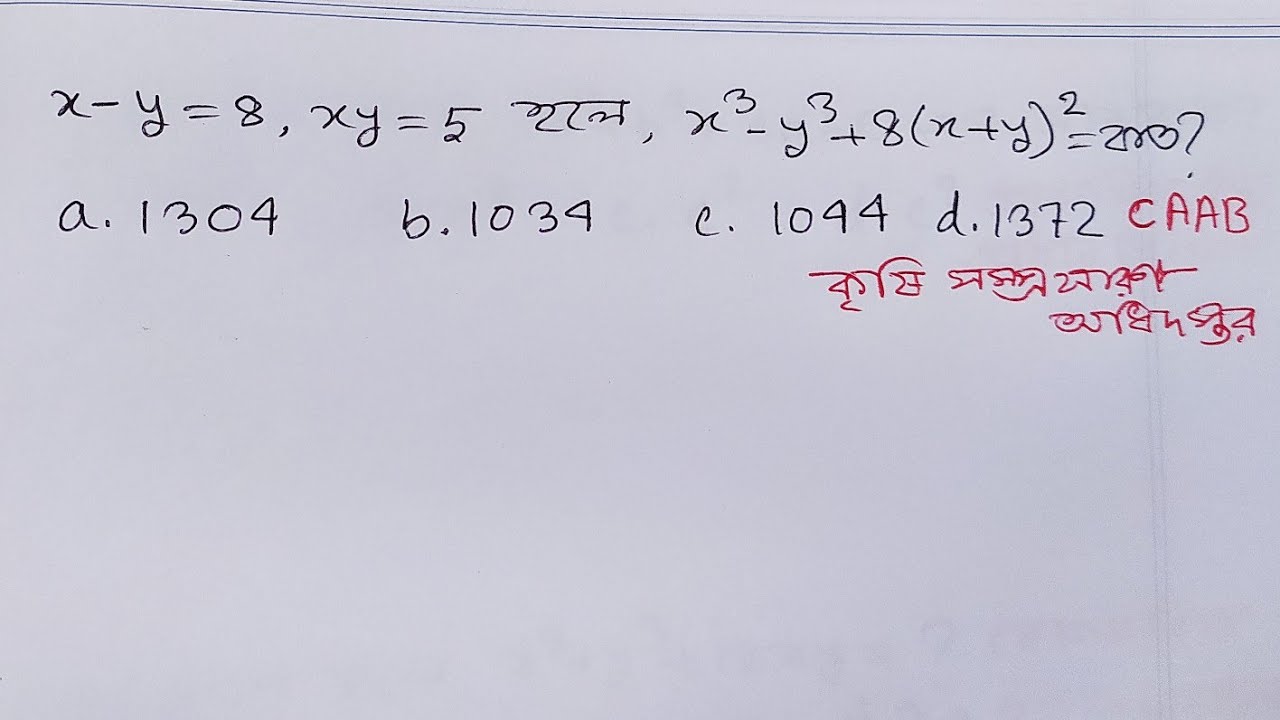 x-y=8, xy=5 হলে, x³-y³+8(x+y)²=কত?
a. 1304 b. 1034 c. 1044 d. 1372 CAAB
কৃষি সম্প্রসারণ
অধিদপ্তর